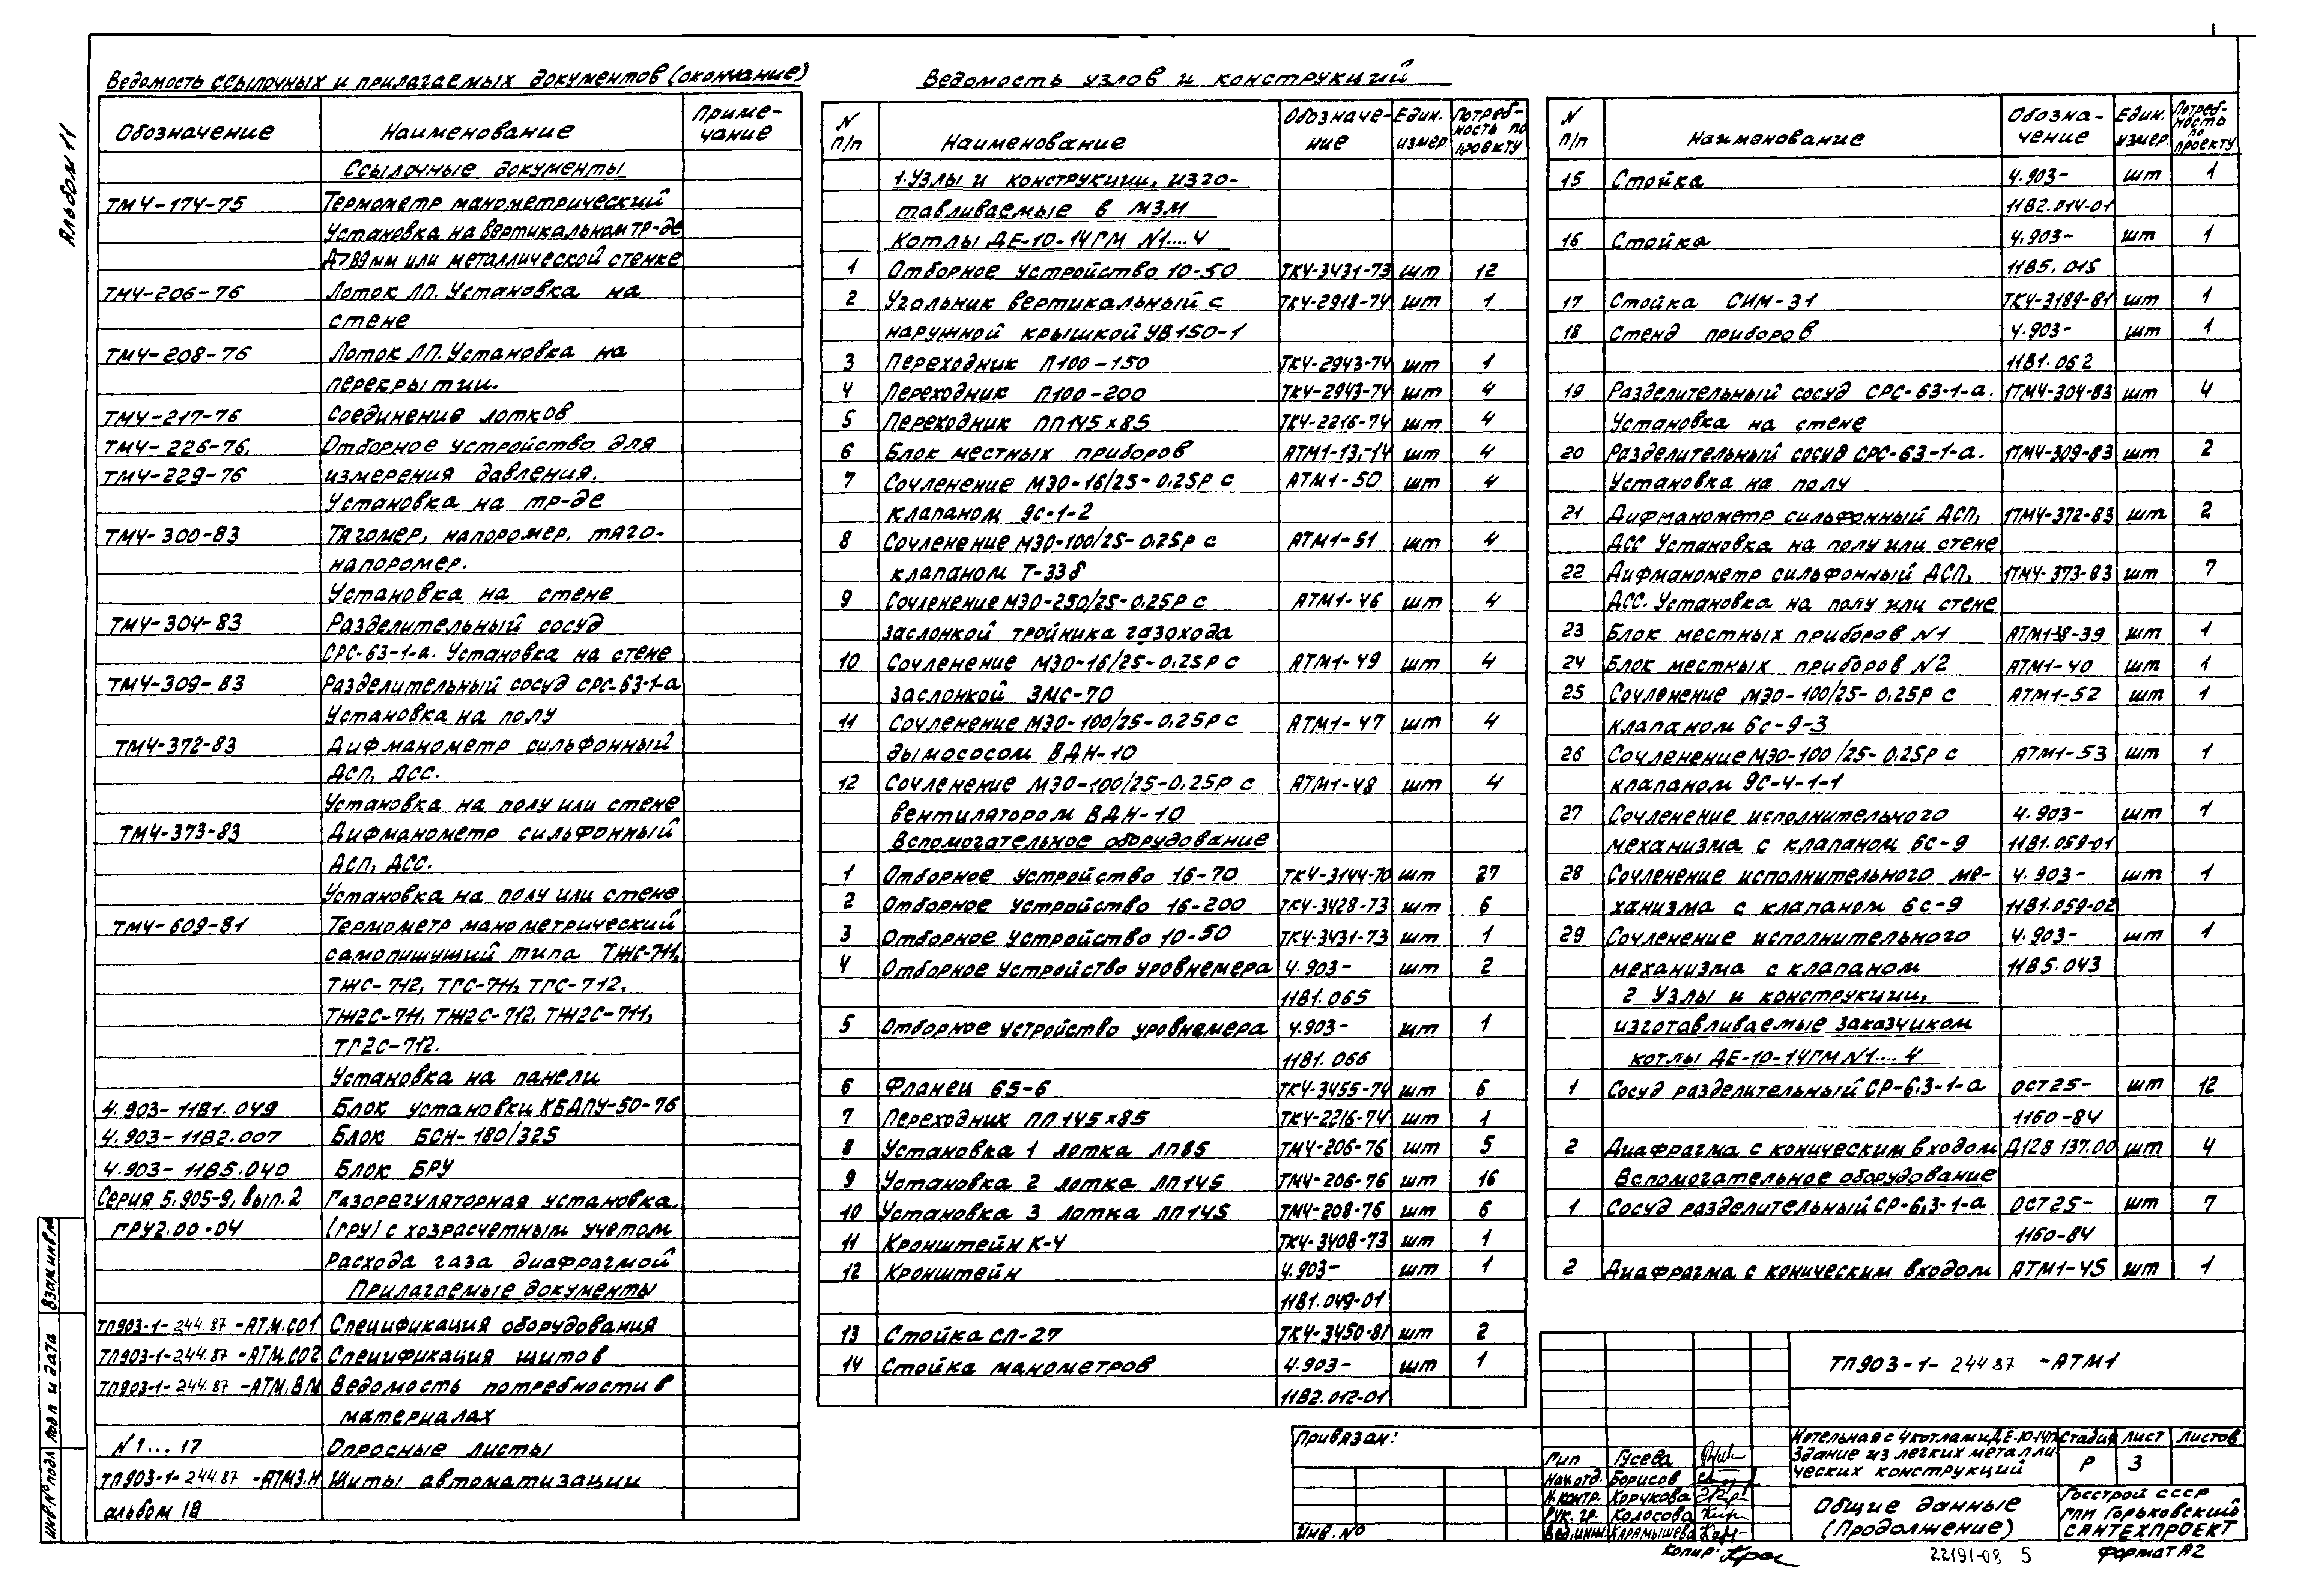 Альбом 11
Ведомость ссылочных и прилагаемых документов (окончание)
Обозначение Наименование Приме-
чание
Ссылочные документы
ТМ4-174-75 Термометр манометрический
Установка на вертикальном тр-де
Д>89мм или металлической стенке
ТМ4-206-76 Лоток ЛП. Установка на
стене
ТМ4-208-76 Лоток ЛП. Установка на
перекрытии.
ТМ4-217-76 Соединение лотков
ТМ4-226-76, Отборное устройство для
ТМ4-229-76 измерения давления.
Установка на тр-де
ТМ4-300-83 Тягомер, напоромер, тяго-
напоромер.
Установка на стене
ТМ4-304-83 Разделительный сосуд
СРС-63-1-а. Установка на стене
ТМ4-309-83 Разделительный сосуд СРС-63-1-а
Установка на полу
ТМ4-372-83 Дифманометр сильфонный
ДСП, ДСС.
Установка на полу или стене
ТМ4-373-83 Дифманометр сильфонный
ДСП, ДСС.
Установка на полу или стене
ТМ4-609-81 Термометр манометрический
самопишущий типа ТЖС-711,
ТЖС-712, ТГС-711, ТГС-712,
ТЖ2С-711, ТЖ2С-712, ТЖ2С-711,
ТГ2С-712.
Установка на панели
4.903-11В1.049 Блок установки КБДПУ-50-76
4.903-11В2.007 Блок БСН-180/325
4.903-11В5.040 Блок БРУ
Серия 5.905-9, вып.2 Газорегуляторная установка.
ГРУ2.00-04 (ГРУ) с хозрасчетным учетом
Расхода газа диафрагмой
Прилагаемые документы
ТП903-1-244.87-АТМ.СО1 Спецификация оборудования
ТП903-1-244.87-АТМ.СО2 Спецификация щитов
ТП903-1-244.87-АТМ.ВМ Ведомость потребности в
материалах
N1...17 Опросные листы
ТП903-1-244.87-АТМ3.Н Щиты автоматизации
альбом 18
Ведомость узлов и конструкций
N
п/п Наименование Обозначе-
ние Един.
измер. Потреб-
ность по
проекту
1. Узлы и конструкции, изго-
тавливаемые в МЗМ
Котлы ДЕ-10-14ГМ N1....4
1 Отборное устройство 10-50 ТК4-3431-73 шт 12
2 Угольник вертикальный с ТК4-2918-74 шт 1
наружной крышкой УВ150-1
3 Переходник П100-150 ТК4-2943-74 шт 1
4 Переходник П100-200 ТК4-2943-74 шт 4
5 Переходник ПП145х85 ТК4-2216-74 шт 4
6 Блок местных приборов АТМ1-13,-14 шт 4
7 Сочленение МЭО-16/25-0.25Р с АТМ1-50 шт 4
клапаном 9с-1-2
8 Сочленение МЭО-100/25-0.25Р с АТМ1-51 шт 4
клапаном Т-33б
9 Сочленение МЭО-250/25-0.25Р с АТМ1-46 шт 4
заслонкой тройника газохода
10 Сочленение МЭО-16/25-0.25Р с АТМ1-49 шт 4
заслонкой ЗМС-70
11 Сочленение МЭО-100/25-0.25Р с АТМ1-47 шт 4
дымососом ВДН-10
12 Сочленение МЭО-100/25-0.25Р с АТМ1-48 шт 4
вентилятором ВДН-10
Вспомогательное оборудование
1 Отборное устройство 16-70 ТК4-3144-70 шт 27
2 Отборное устройство 16-200 ТК4-3428-73 шт 6
3 Отборное устройство 10-50 ТК4-3431-73 шт 1
4 Отборное устройство уровнемера 4.903- шт 2
11В1.065
5 Отборное устройство уровнемера 4.903- шт 1
11В1.066
6 Фланец 65-6 ТК4-3455-74 шт 6
7 Переходник ПП145х85 ТК4-2216-74 шт 1
8 Установка 1 лотка ЛП85 ТМ4-206-76 шт 5
9 Установка 2 лотка ЛП145 ТМ4-206-76 шт 16
10 Установка 3 лотка ЛП145 ТМ4-208-76 шт 6
11 Кронштейн К-4 ТК4-3408-73 шт 1
12 Кронштейн 4.903- шт 1
11В1.049-01
13 Стойка СП-27 ТК4-3450-81 шт 2
14 Стойка манометров 4.903- шт 1
11В2.012-01
N
п/п Наименование Обозна-
чение Един.
измер. Потреб-
ность
по
проекту
15 Стойка 4.903- шт 1
11В2.014-01
16 Стойка 4.903- шт 1
11В5.015
17 Стойка СИМ-31 ТК4-3189-81 шт 1
18 Стенд приборов 4.903- шт 1
11В1.062
19 Разделительный сосуд СРС-63-1-а. 1ТМ4-304-83 шт 4
Установка на стене
20 Разделительный сосуд СРС-63-1-а. 1ТМ4-309-83 шт 2
Установка на полу
21 Дифманометр сильфонный ДСП, 1ТМ4-372-83 шт 2
ДСС Установка на полу или стене
22 Дифманометр сильфонный ДСП, 1ТМ4-373-83 шт 7
ДСС. Установка на полу или стене
23 Блок местных приборов N1 АТМ1-38-39 шт 1
24 Блок местных приборов N2 АТМ1-40 шт 1
25 Сочленение МЭО-100/25-0.25Р с АТМ1-52 шт 1
клапаном 6с-9-3
26 Сочленение МЭО-100/25-0.25Р с АТМ1-53 шт 1
клапаном 9с-4-1-1
27 Сочленение исполнительного 4.903- шт 1
механизма с клапаном 6с-9 11В1.059-01
28 Сочленение исполнительного ме- 4.903- шт 1
ханизма с клапаном 6с-9 11В1.059-02
29 Сочленение исполнительного 4.903- шт 1
механизма с клапаном 11В5.043
2 Узлы и конструкции,
изготавливаемые заказчиком
котлы ДЕ-10-14ГМ N1....4
1 Сосуд разделительный СР-6,3-1-а ОСТ25- шт 12
1160-84
2 Диафрагма с коническим входом Д128 137.00 шт 4
Вспомогательное оборудование
1 Сосуд разделительный СР-6,3-1-а ОСТ25- шт 7
1160-84
2 Диафрагма с коническим входом АТМ1-45 шт 1
ТП903-1-244 87 -АТМ1
Привязан:
Инв.No
ГИП Гусева
Нач.отд. Борисов
Н.контр. Корукова
Рук.гр. Колосова
Вед.инж. Карамышева
Котельная с 4 котлами ДЕ-10-14ГМ
Здание из легких металли
ческих конструкций
Стадия Лист Листов
Р 3
Общие данные
(Продолжение)
Госстрой СССР
ГПИ Горьковский
САНТЕХПРОЕКТ
Копир.
22191-08 5
Формат А2
Взам.инв.N
Подп и дата
Инв.№подл